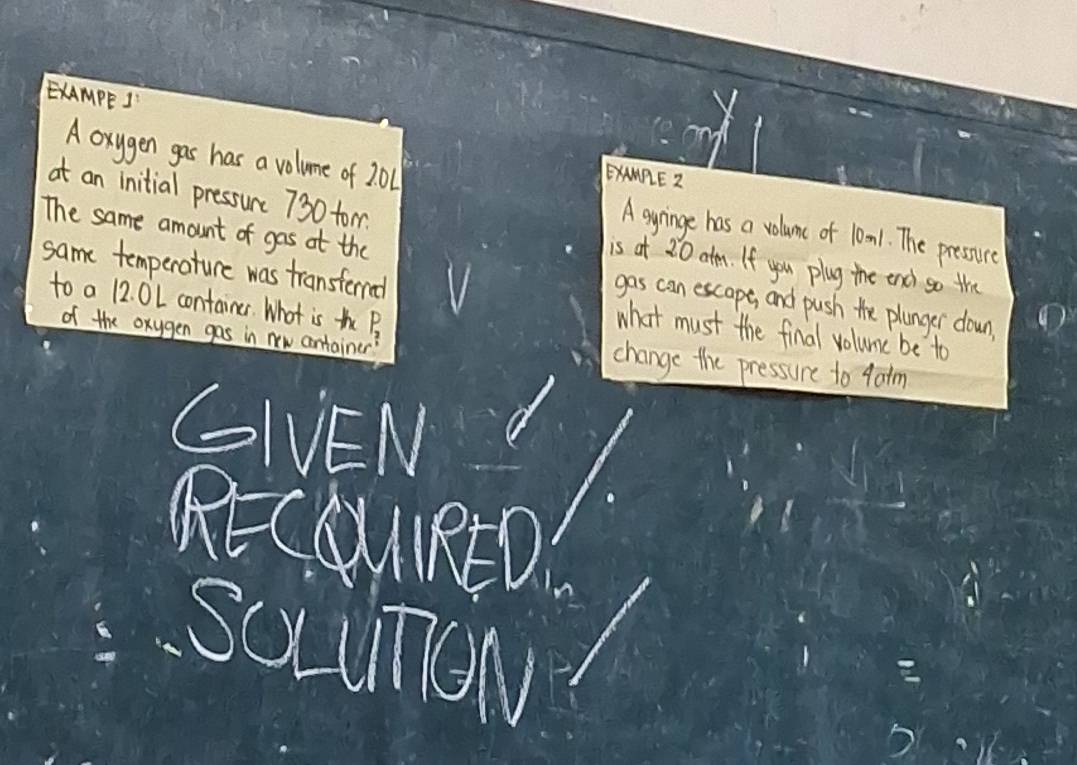 EXAMPE 1:
A oxygen gas has a volume of 2.0L
at an initial pressure 730 torr.
The same amount of gas at the
same temperature was transferred
to a 12.0L container. What is the P2
of the oxygen gas in new container?
EXAMPLE 2
A syringe has a volume of 10ml. The pressure
is at 20 atm. If you plug the end so the
gas can escape, and push the plunger down,
what must the final volume be to
change the pressure to 4atm
GIVEN
RECQUIRED
SOLUTION